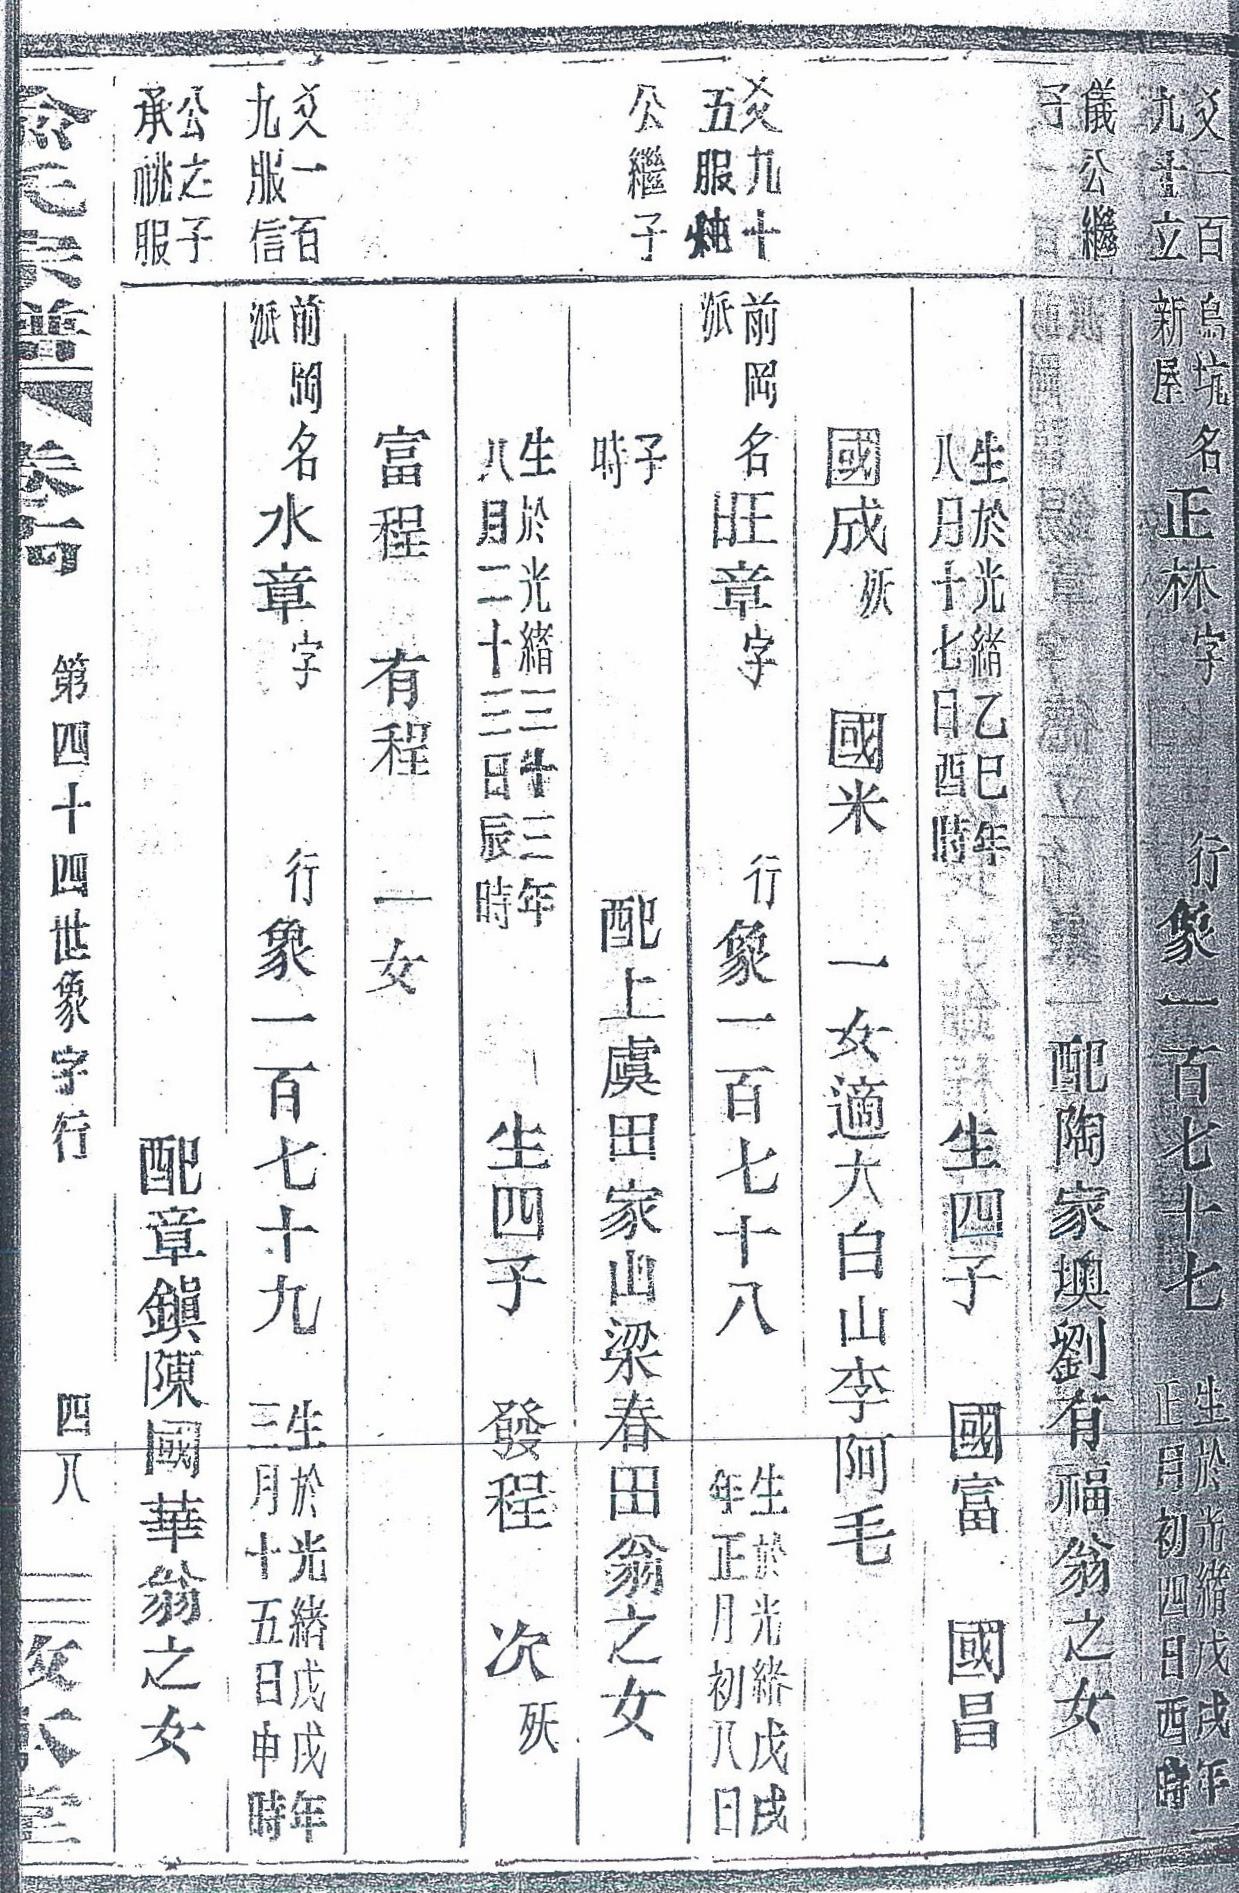 爻一百
九十立
儀公繼
子
烏坑
新屋
名正林字 行象一百七十七
生於光緒戊戌年
正月初四日酉時
配陶家墺劉有福翁之女
生於光緒乙巳年
八月十七日酉時
生四子 國富 國昌
國成殀 國米 一女適大白山李阿毛
爻九十
五服
公繼子
前岡
派
名旺章字 行象一百七十八
生於光緒戊戌
年正月初八日
子
時
配上虞田家山梁春田翁之女
生於光緒三十三年
八月二十三日辰時
生四子 發程 次殀
富程 有程 一女
爻一百
九服信
公之子
承祧服
前岡
派
名水章字 行象一百七十九
生於光緒戊戌年
三月十五日申時
配章鎮陳國華翁之女
俞氏宗譜 卷 第四十四世象字行 四八 敦本堂